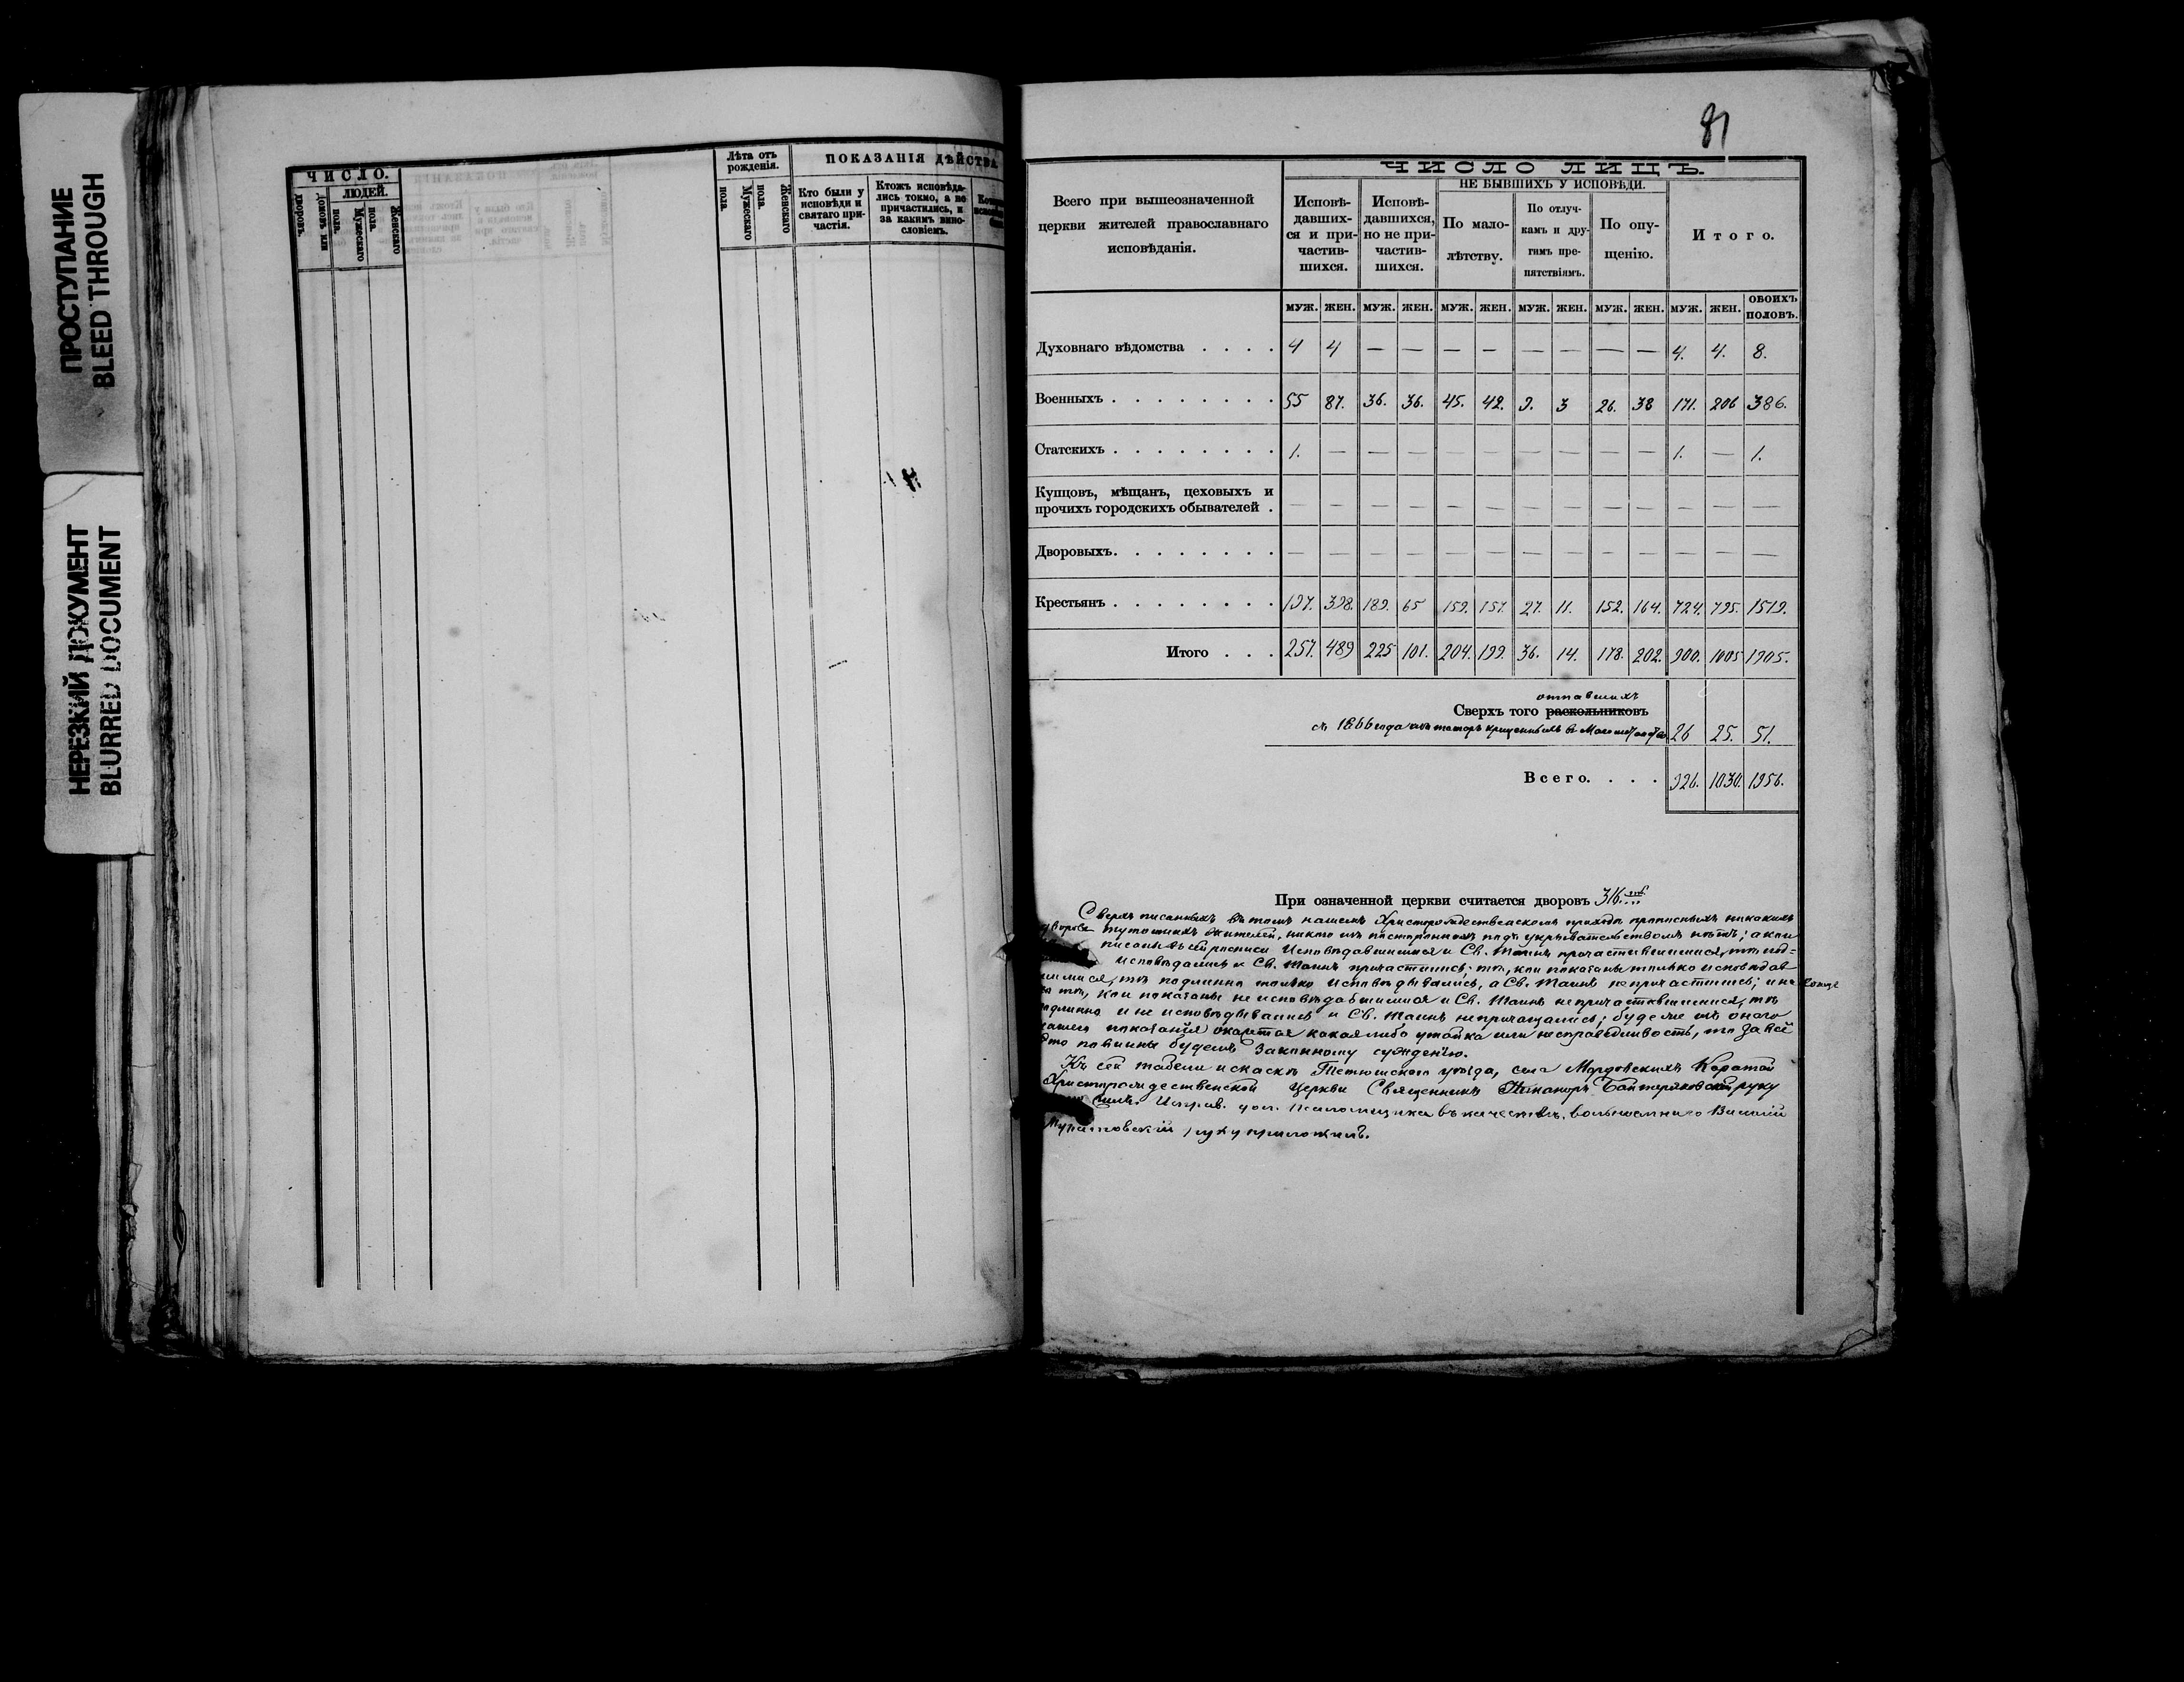 ПРОСТУПАНИЕ
BLEED THROUGH
НЕРЕЗКИЙ ДОКУМЕНТ
BLURRED DOCUMENT
ЧИСЛО.
дворовъ.
домовъ или
ЛЮДЕЙ.
Мужескаго пола.
Женскаго пола.
Лѣта отъ рожденія.
Мужескаго пола.
Женскаго пола.
ПОКАЗАНІЯ ДѢЙСТВА
Кто были у исповѣди и святаго причастія.
Ктожъ исповѣдались токмо, а не причастились, и за какимъ винословіемъ.
81
Всего при вышеозначенной церкви жителей православнаго исповѣданія.
ЧИСЛО ЛИЦЪ.
Исповѣдавшихся и причастившихся.
Исповѣдавшихся, но не причастившихся.
НЕ БЫВШИХЪ У ИСПОВѢДИ.
По малолѣтству.
По отлучкамъ и другимъ препятствіямъ.
По опущенію.
Итого.
муж. жен. муж. жен. муж. жен. муж. жен. муж. жен. муж. жен. обоихъ половъ.
Духовнаго вѣдомства . . . . 4 4 — — — — — — — — 4. 4. 8.
Военныхъ . . . . . . . . 55 87. 36. 36. 45. 42. 9. 3 26. 38 171. 206 386.
Статскихъ . . . . . . . . 1. — — — — — — — — — 1. — 1.
Купцовъ, мѣщанъ, цеховыхъ и
прочихъ городскихъ обывателей . — — — — — — — — — — — — —
Дворовыхъ. . . . . . . . — — — — — — — — — — — — —
Крестьянъ . . . . . . . . 197. 398. 189. 65 159. 157. 27. 11. 152. 164. 724. 795. 1519.
Итого . . . 257. 489 225 101. 204. 199. 36. 14. 178. 202. 900. 1005 1905.
отпавшихъ
Сверхъ того раскольниковъ
съ 1866 года изъ татаръ крещенныхъ въ 26 25. 51.
Всего. . . . 926. 1030. 1956.
При означенной церкви считается дворовъ 316.
Сверхъ писанныхъ въ томъ нашемъ Христорождественскомъ приходѣ прописныхъ никакихъ
тутошнихъ жителей, никого изъ постороннихъ подъ укрывательствомъ нѣтъ; а кои
писаны въ сей росписи Исповѣдавшимися и Св. Таинъ причастившимися, тѣ под=
исповѣдались и Св. Таинъ причастились; тѣ, кои показаны только исповѣдав
шимися, тѣ подлинно только исповѣдывались, а Св. Таинъ не причастились; и на конецъ
тѣ, кои показаны не исповѣдавшимися и Св. Таинъ не причастившимися, тѣ
подлинно и не исповѣдывались и Св. Таинъ не причащались; буде же изъ онаго
нашего показанія окажется какая либо утайка или несправедливость, то за всё
это повинны будемъ законному сужденію.
Къ сей табели и сказкѣ Тетюшскаго уѣзда, села Мордовскихъ Каратай
Христорождественской Церкви Священникъ Никаноръ руку
Исправ. дол. Псаломщика въ качествѣ вольнонаемнаго Василій
руку приложилъ.